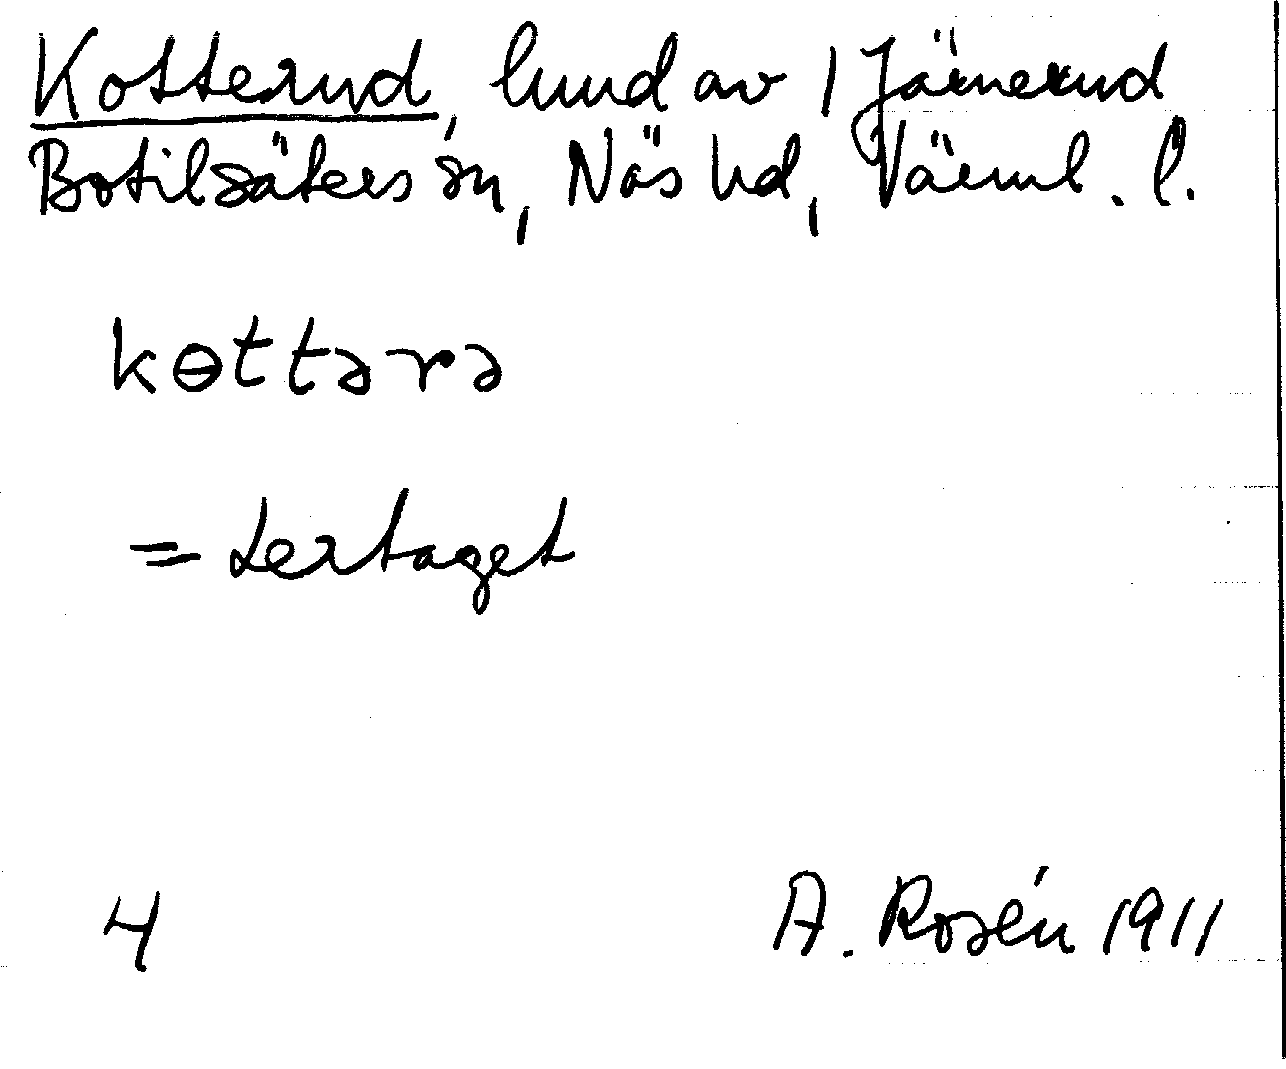 Kotterud, lund av 1 Järnerud
Botilsäters sn, Näs hd, Värml. l.
kɵttərə
= Lertaget
4
A. Rosén 1911